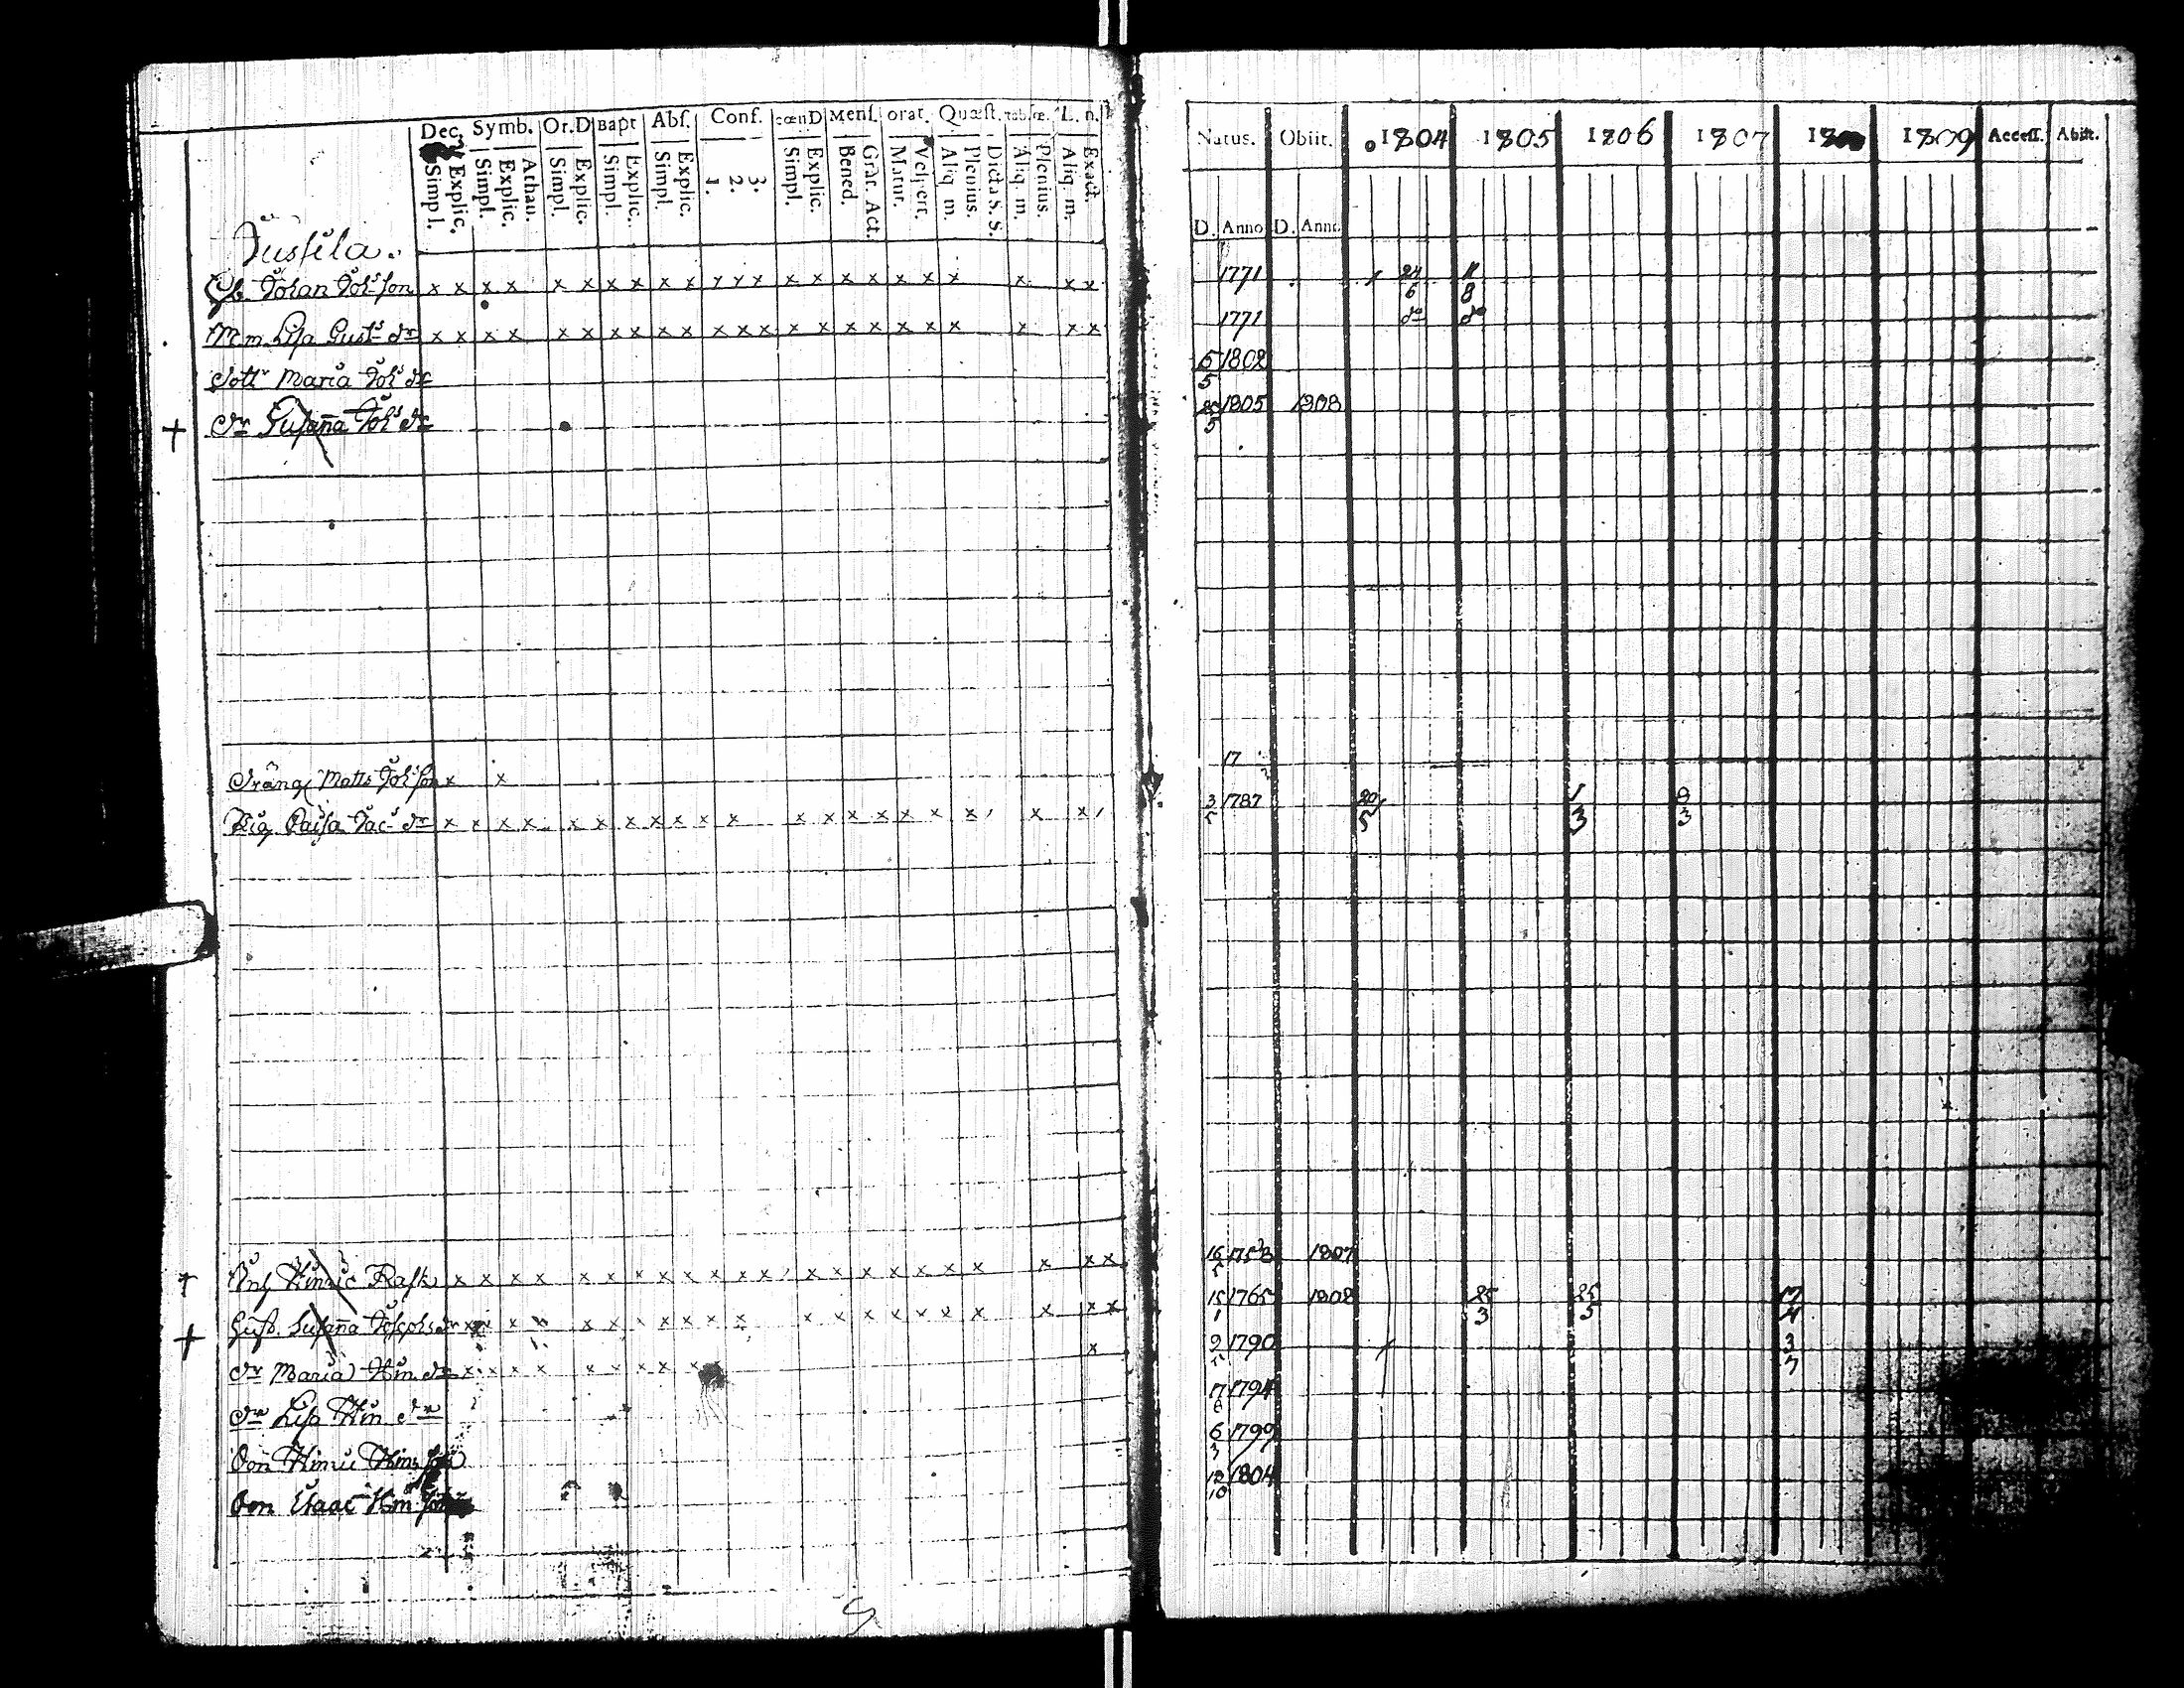 Dec. Symb. Or.D Bapt Abſ. Conf. cœnD Menſ. orat. Quæſt. Tab.œ. L. n.
Simpl. Explic. Simpl. Explic. Athan. Simpl. Explic. Simpl. Explic. Simpl. Explic. 1. 2. 3. Simpl. Explic. Bened. Grat. Act. Matut. Veſpert. Aliq. m. Plenius. Dicta S. S. Aliq. m. Plenius. Aliq. m. Exact.
Natus. Obiit. 1804 1805 1806 1807 1809 Acceſſ. Abiit.
D. Anno D. Anno
Jussila.
Johan Joh: ſon x x x x x x x x x x x x x x x x x x x x x x x 1771 24/6 11/8
M:m Liſa Gust: dr x x x x x x x x x x x x x x x x x x x x x x x 1771 do do
Dottr Maria Joh: dr 6/5 1802
+ Dr Suſaña Joh: dr 1805 1808
Dräng Matts Joh: ſon x x 17
Pig. Caiſa Jac: dr x x x x x x x x x x x x x x x x x x x x 3/5 1787 20/5 1/3 8/3
† Hinric Raſk x x x x x x x x x x x x x x x x x x x x x x 16/5 1758 1807
+ Huſt. Suſaña Josephs dr x x x x x x x x x x x x x x x x x x x x 15/1 1765 1808 25/3 25/5 17/4
Dr Maria Hin: dr x x x x x x x x x x 9/5 1790 3/7
Dr Liſa Hin: dr 17/8 1794
Son Hinric Hin: ſon 6/3 1799
Son Isaac Hin: ſon 12/10 1804